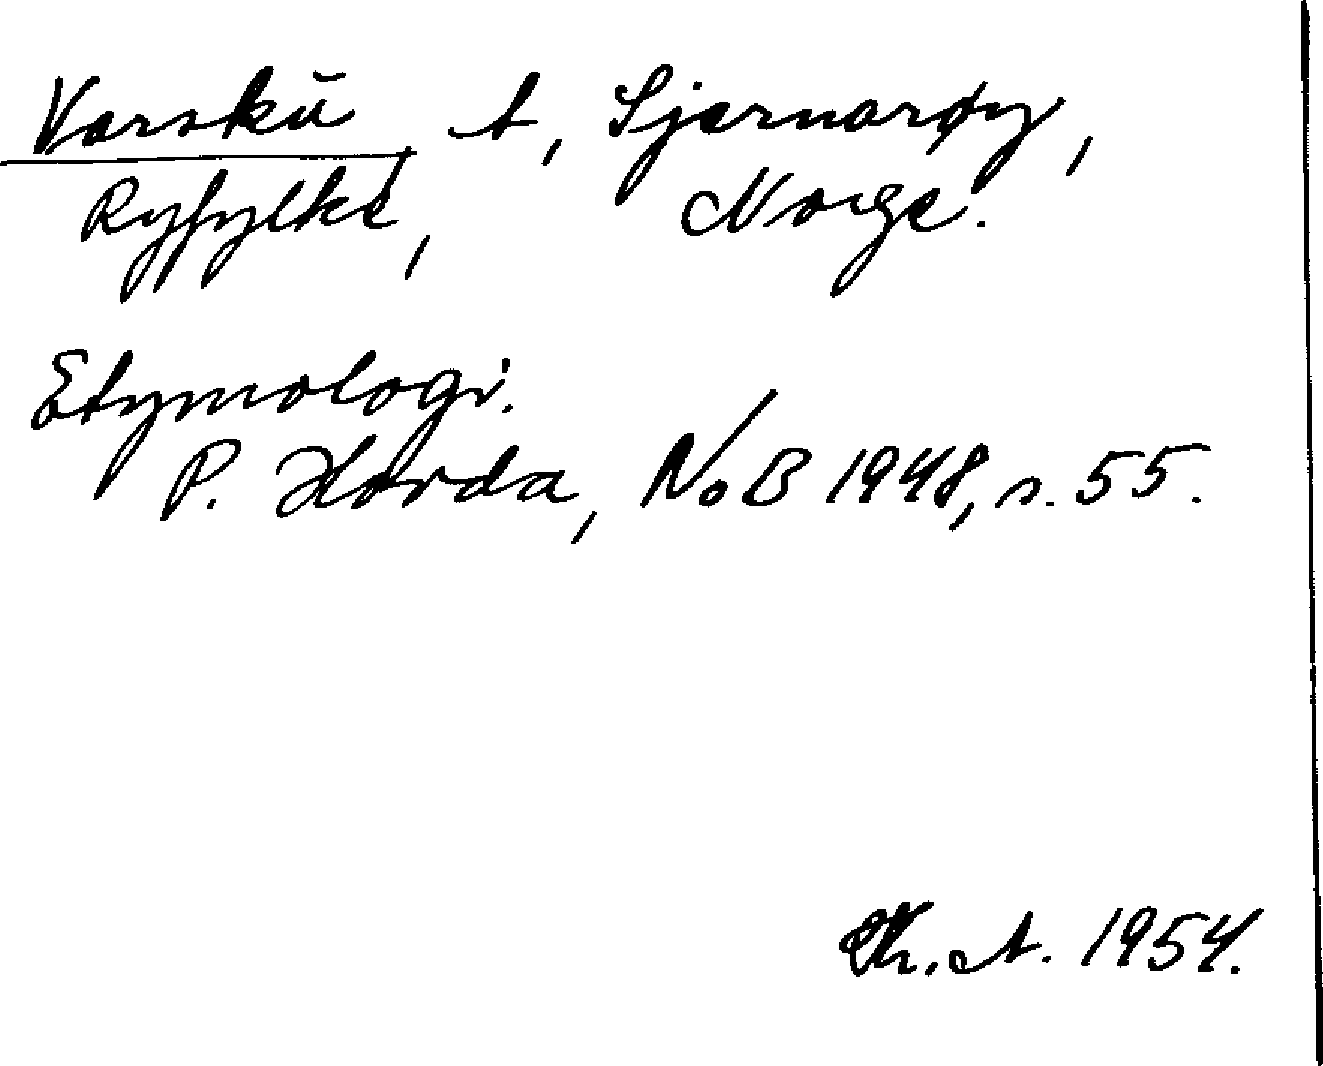 Varskū, A, Sjernarøy,
Ryfylke, Norge.
Etymologi.
P. Hovda, NoB 1948, s. 55.
A. 1954.